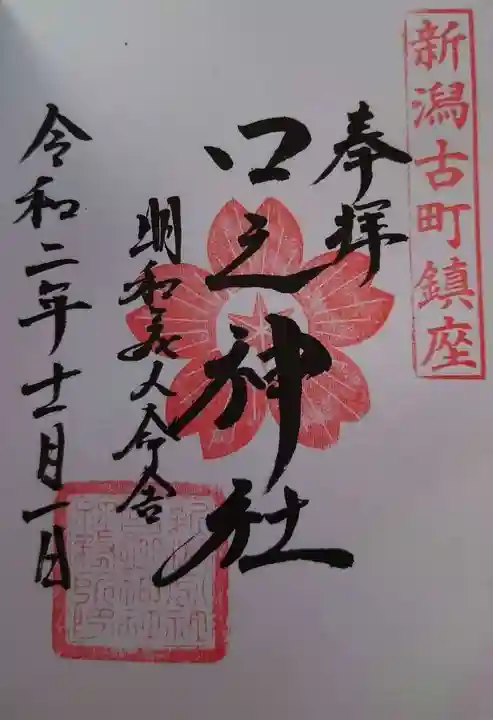 新潟古町鎮座
奉拝
口之神社
明和義人合舎
令和二年十二月一日